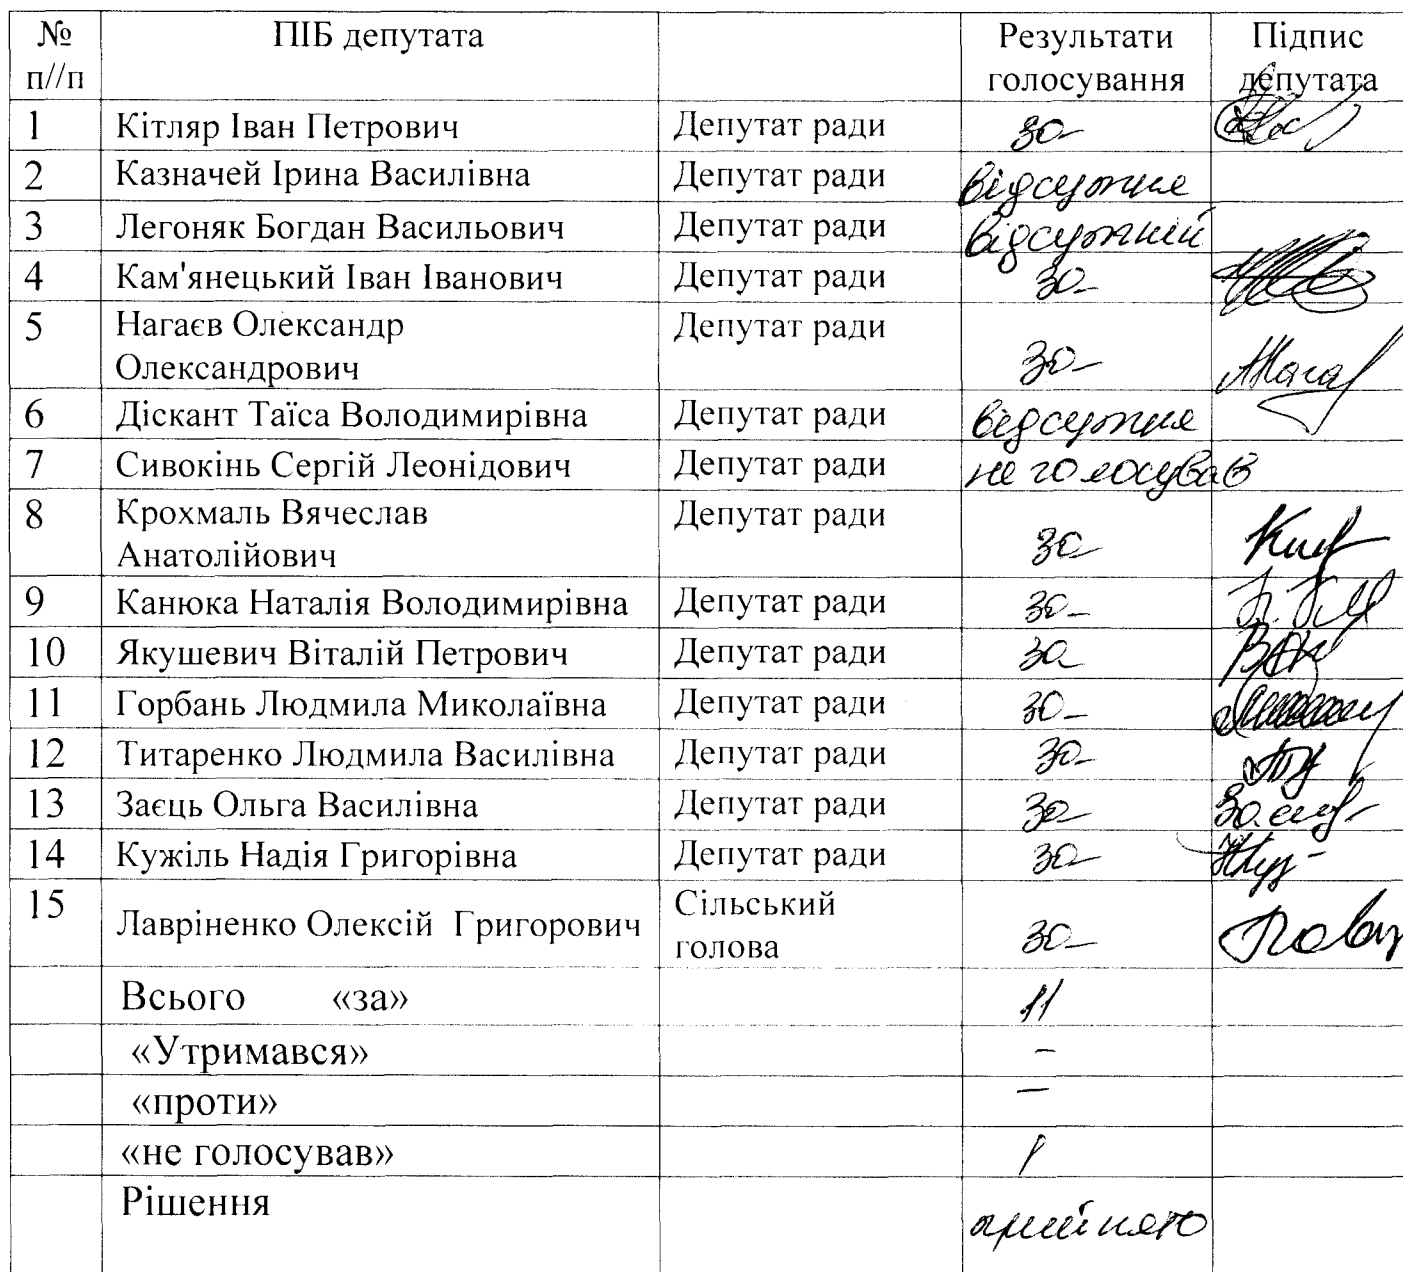 № ПІБ депутата Результати Підпис
п//п голосування депутата
1 Кітляр Іван Петрович Депутат ради за
2 Казначей Ірина Василівна Депутат ради відсутня
3 Легоняк Богдан Васильович Депутат ради відсутній
4 Кам'янецький Іван Іванович Депутат ради за
5 Нагаєв Олександр Депутат ради
Олександрович за
6 Діскант Таїса Володимирівна Депутат ради відсутня
7 Сивокінь Сергій Леонідович Депутат ради не голосував
8 Крохмаль Вячеслав Депутат ради
Анатолійович за
9 Канюка Наталія Володимирівна Депутат ради за
10 Якушевич Віталій Петрович Депутат ради за
11 Горбань Людмила Миколаївна Депутат ради за
12 Титаренко Людмила Василівна Депутат ради за
13 Заєць Ольга Василівна Депутат ради за
14 Кужіль Надія Григорівна Депутат ради за
15 Лавріненко Олексій Григорович Сільський за
голова
Всього «за» 11
«Утримався» -
«проти» -
«не голосував» 1
Рішення прийнято